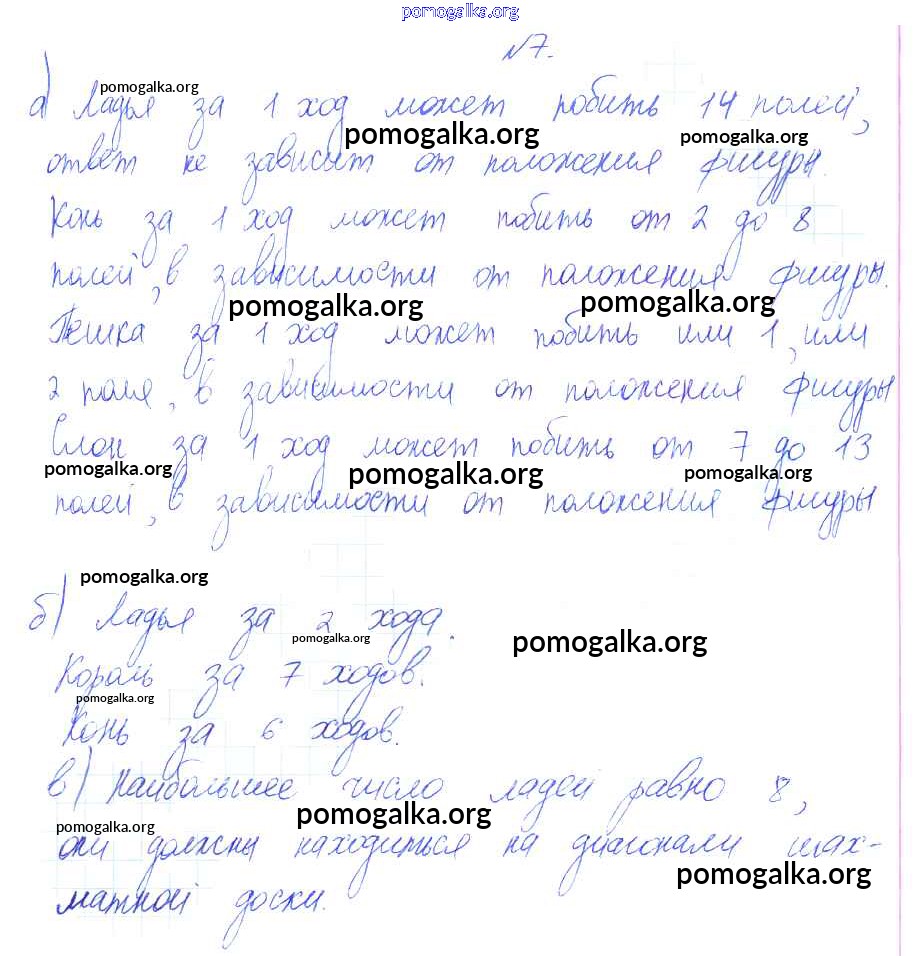 pomogalka.org
№7.
а) Ладья за 1 ход может побить 14 полей,
pomogalka.org
pomogalka.org
pomogalka.org
ответ не зависит от положения фигуры.
Конь за 1 ход может побить от 2 до 8
полей, в зависимости от положения фигуры.
pomogalka.org
pomogalka.org
Пешка за 1 ход может побить или 1, или
2 поля, в зависимости от положения фигуры
Слон за 1 ход может побить от 7 до 13
pomogalka.org
pomogalka.org
pomogalka.org
полей, в зависимости от положения фигуры
pomogalka.org
б) Ладья за 2 хода.
pomogalka.org
pomogalka.org
Король за 7 ходов.
pomogalka.org
Конь за 6 ходов.
в) Наибольшее число ладей равно 8,
pomogalka.org
pomogalka.org
они должны находиться на диагонали шах-
pomogalka.org
матной доски.